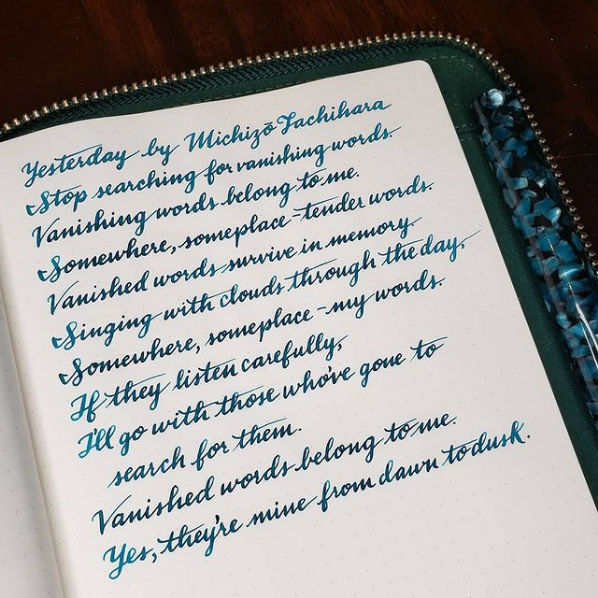 Yesterday by Michizō Tachihara
Stop searching for vanishing words.
Vanishing words belong to me.
Somewhere, someplace-tender words.
Vanished words survive in memory.
Singing with clouds through the day,
Somewhere, someplace-my words.
If they listen carefully,
I'll go with those who've gone to
search for them.
Vanished words belong to me.
Yes, they're mine from dawn to dusk.